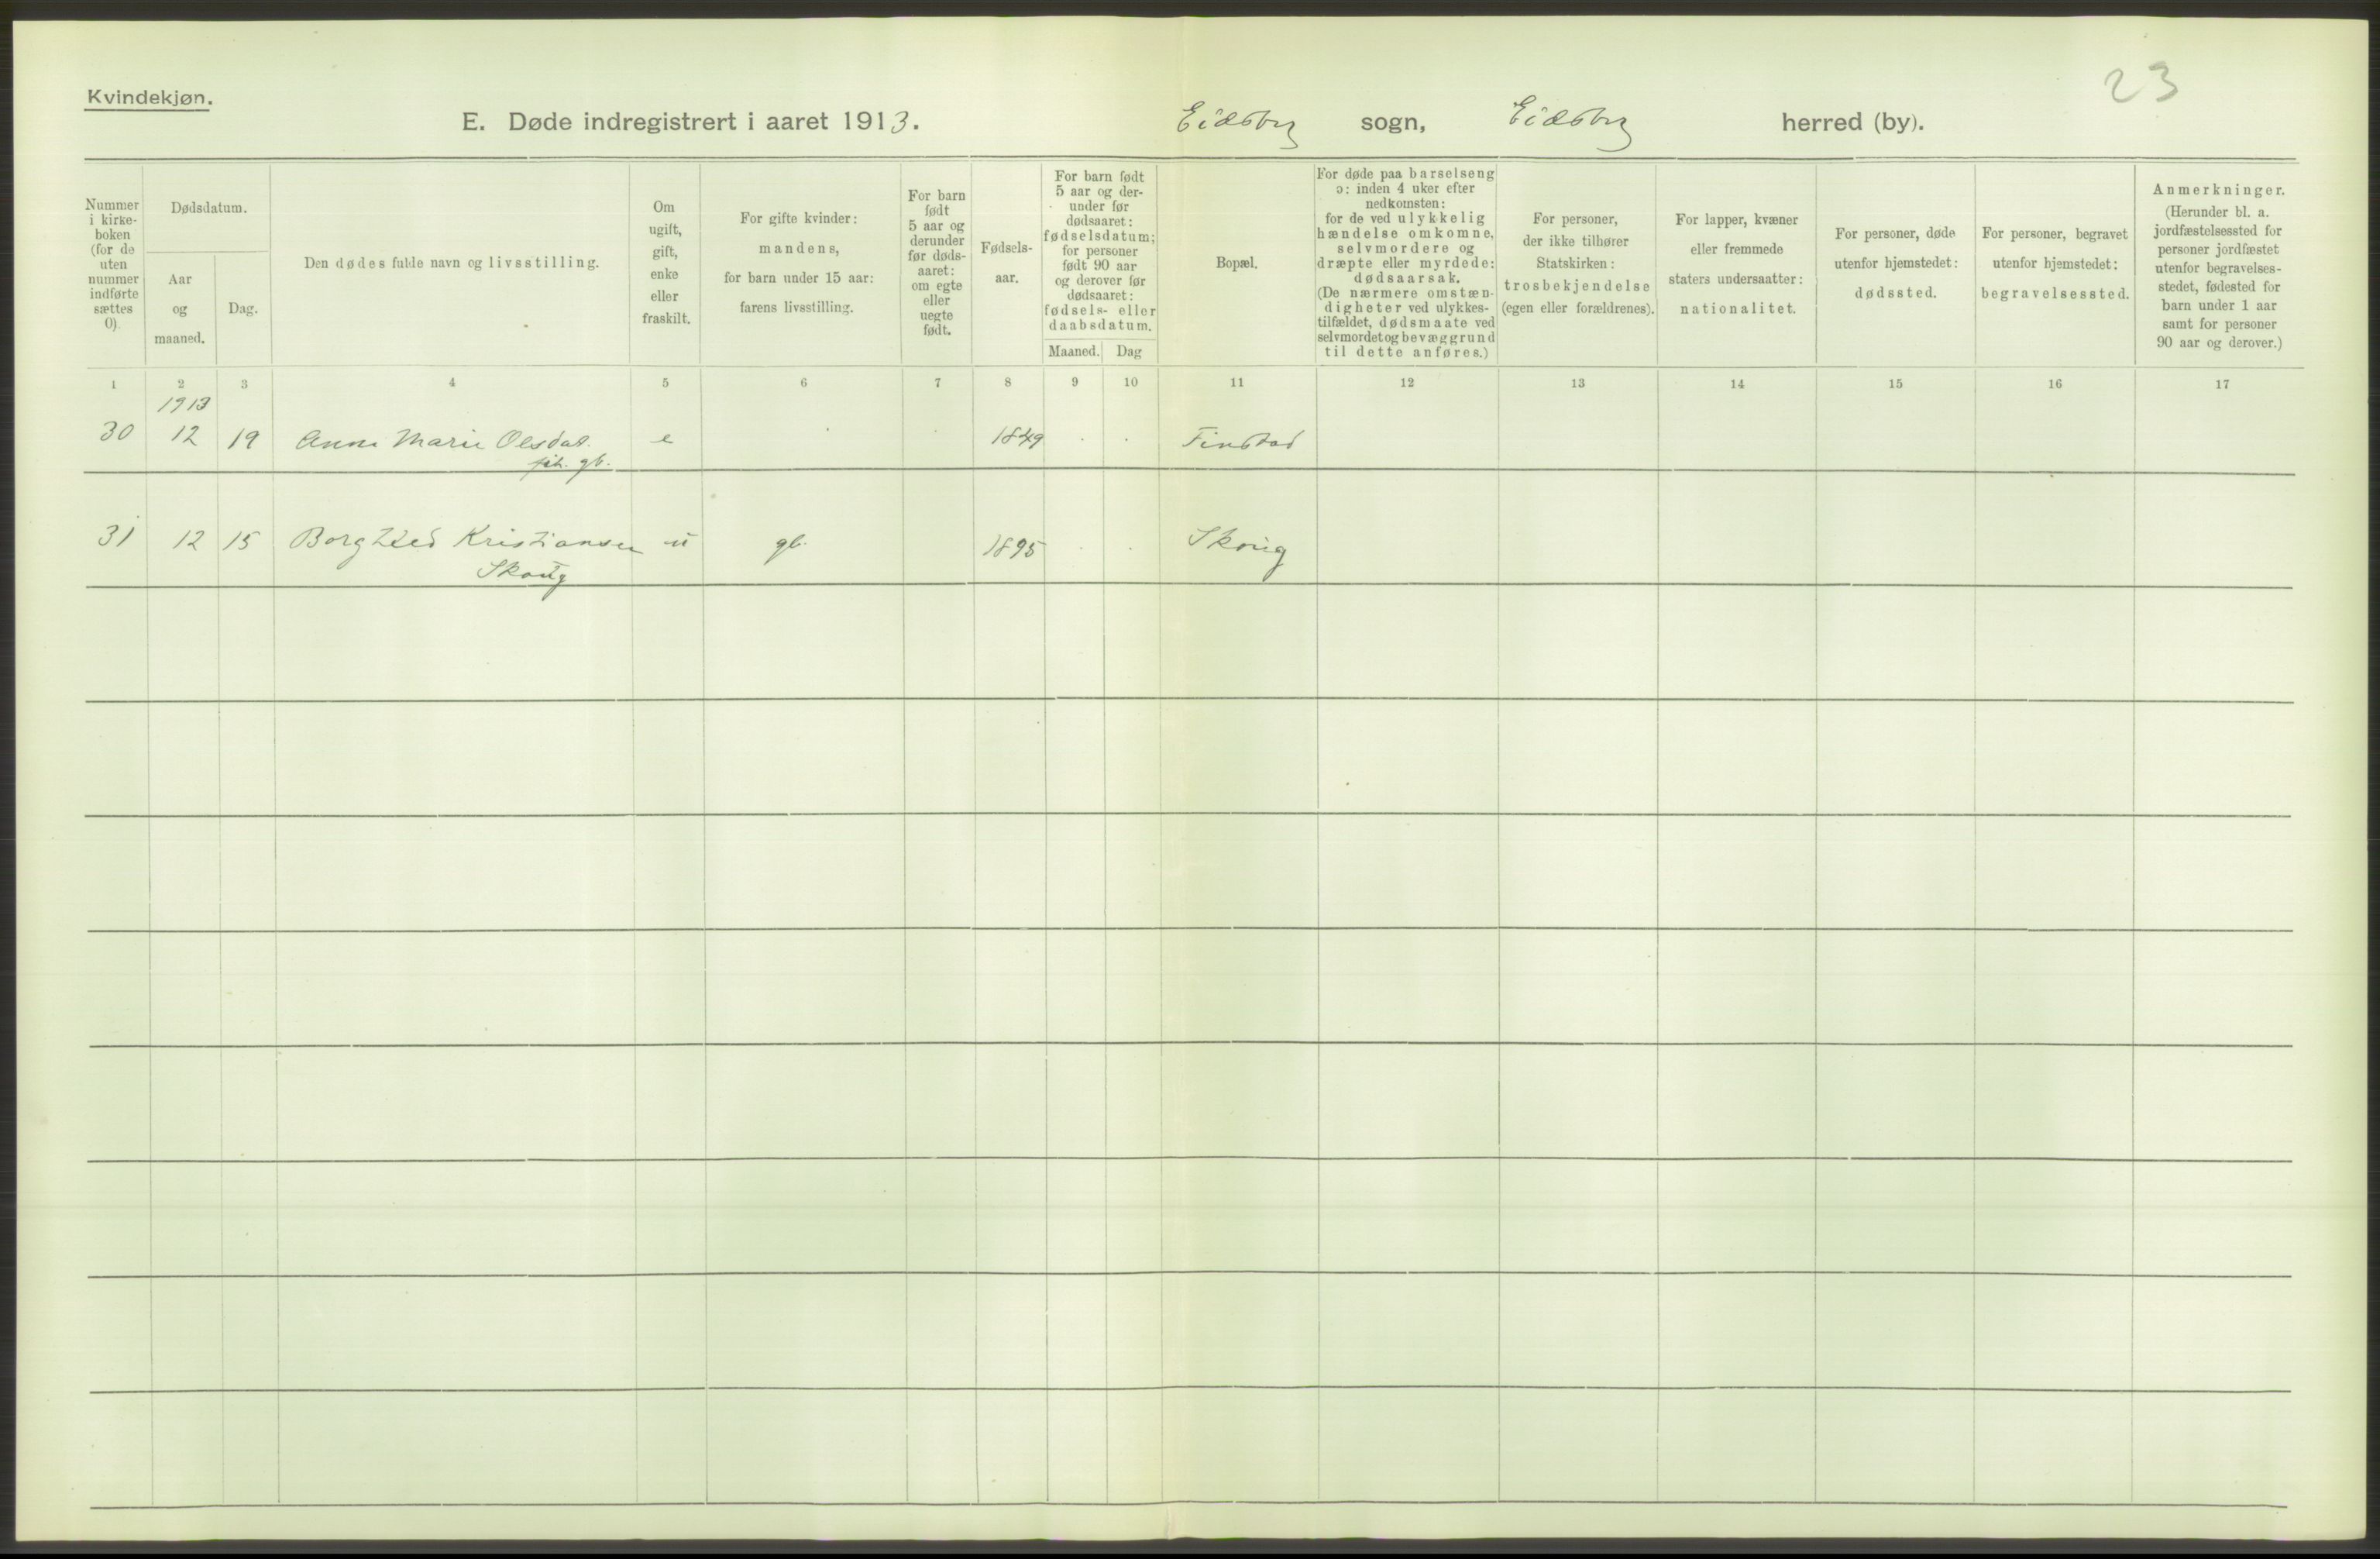 23
Kvindekjøn.
E. Døde indregistrert i aaret 1913. Eidsberg sogn, Eidsberg herred (by).
Nummer i kirke- boken (for de uten nummer indførte sættes 0).
Dødsdatum.
Aar og maaned.
Dag.
Den dødes fulde navn og livsstilling.
Om ugift, gift, enke eller fraskilt.
For gifte kvinder: mandens, for barn under 15 aar: farens livsstilling.
For barn født 5 aar og derunder før døds- aaret: om egte eller uegte født.
Fødsels- aar.
For barn født 5 aar og der- under før dødsaaret: fødselsdatum; for personer født 90 aar og derover før dødsaaret: fødsels- eller daabsdatum.
Maaned. Dag
Bopæl.
For døde paa barselseng ɔ: inden 4 uker efter nedkomsten: for de ved ulykkelig hændelse omkomne, selvmordere og dræpte eller myrdede: dødsaarsak. (De nærmere omstæn- digheter ved ulykkes- tilfældet, dødsmaate ved selvmordet og bevæggrund til dette anføres.)
For personer, der ikke tilhører Statskirken: trosbekjendelse (egen eller forældrenes).
For lapper, kvæner eller fremmede staters undersaatter: nationalitet.
For personer, døde utenfor hjemstedet: dødssted.
For personer, begravet utenfor hjemstedet: begravelsessted.
Anmerkninger. (Herunder bl. a. jordfæstelsessted for personer jordfæstet utenfor begravelses- stedet, fødested for barn under 1 aar samt for personer 90 aar og derover.)
1 2 3 4 5 6 7 8 9 10 11 12 13 14 15 16 17
1913
30 12 19 Anne Marie Olsdat. e 1849 Finstad
gb.
31 12 15 Borghild Kristiansen u gb. 1895 Skoug
Skoug